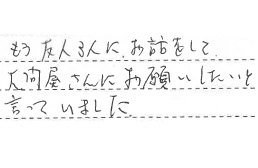 もう友人3人に、お話をして
大問屋さんにお願いしたいと
言っていました